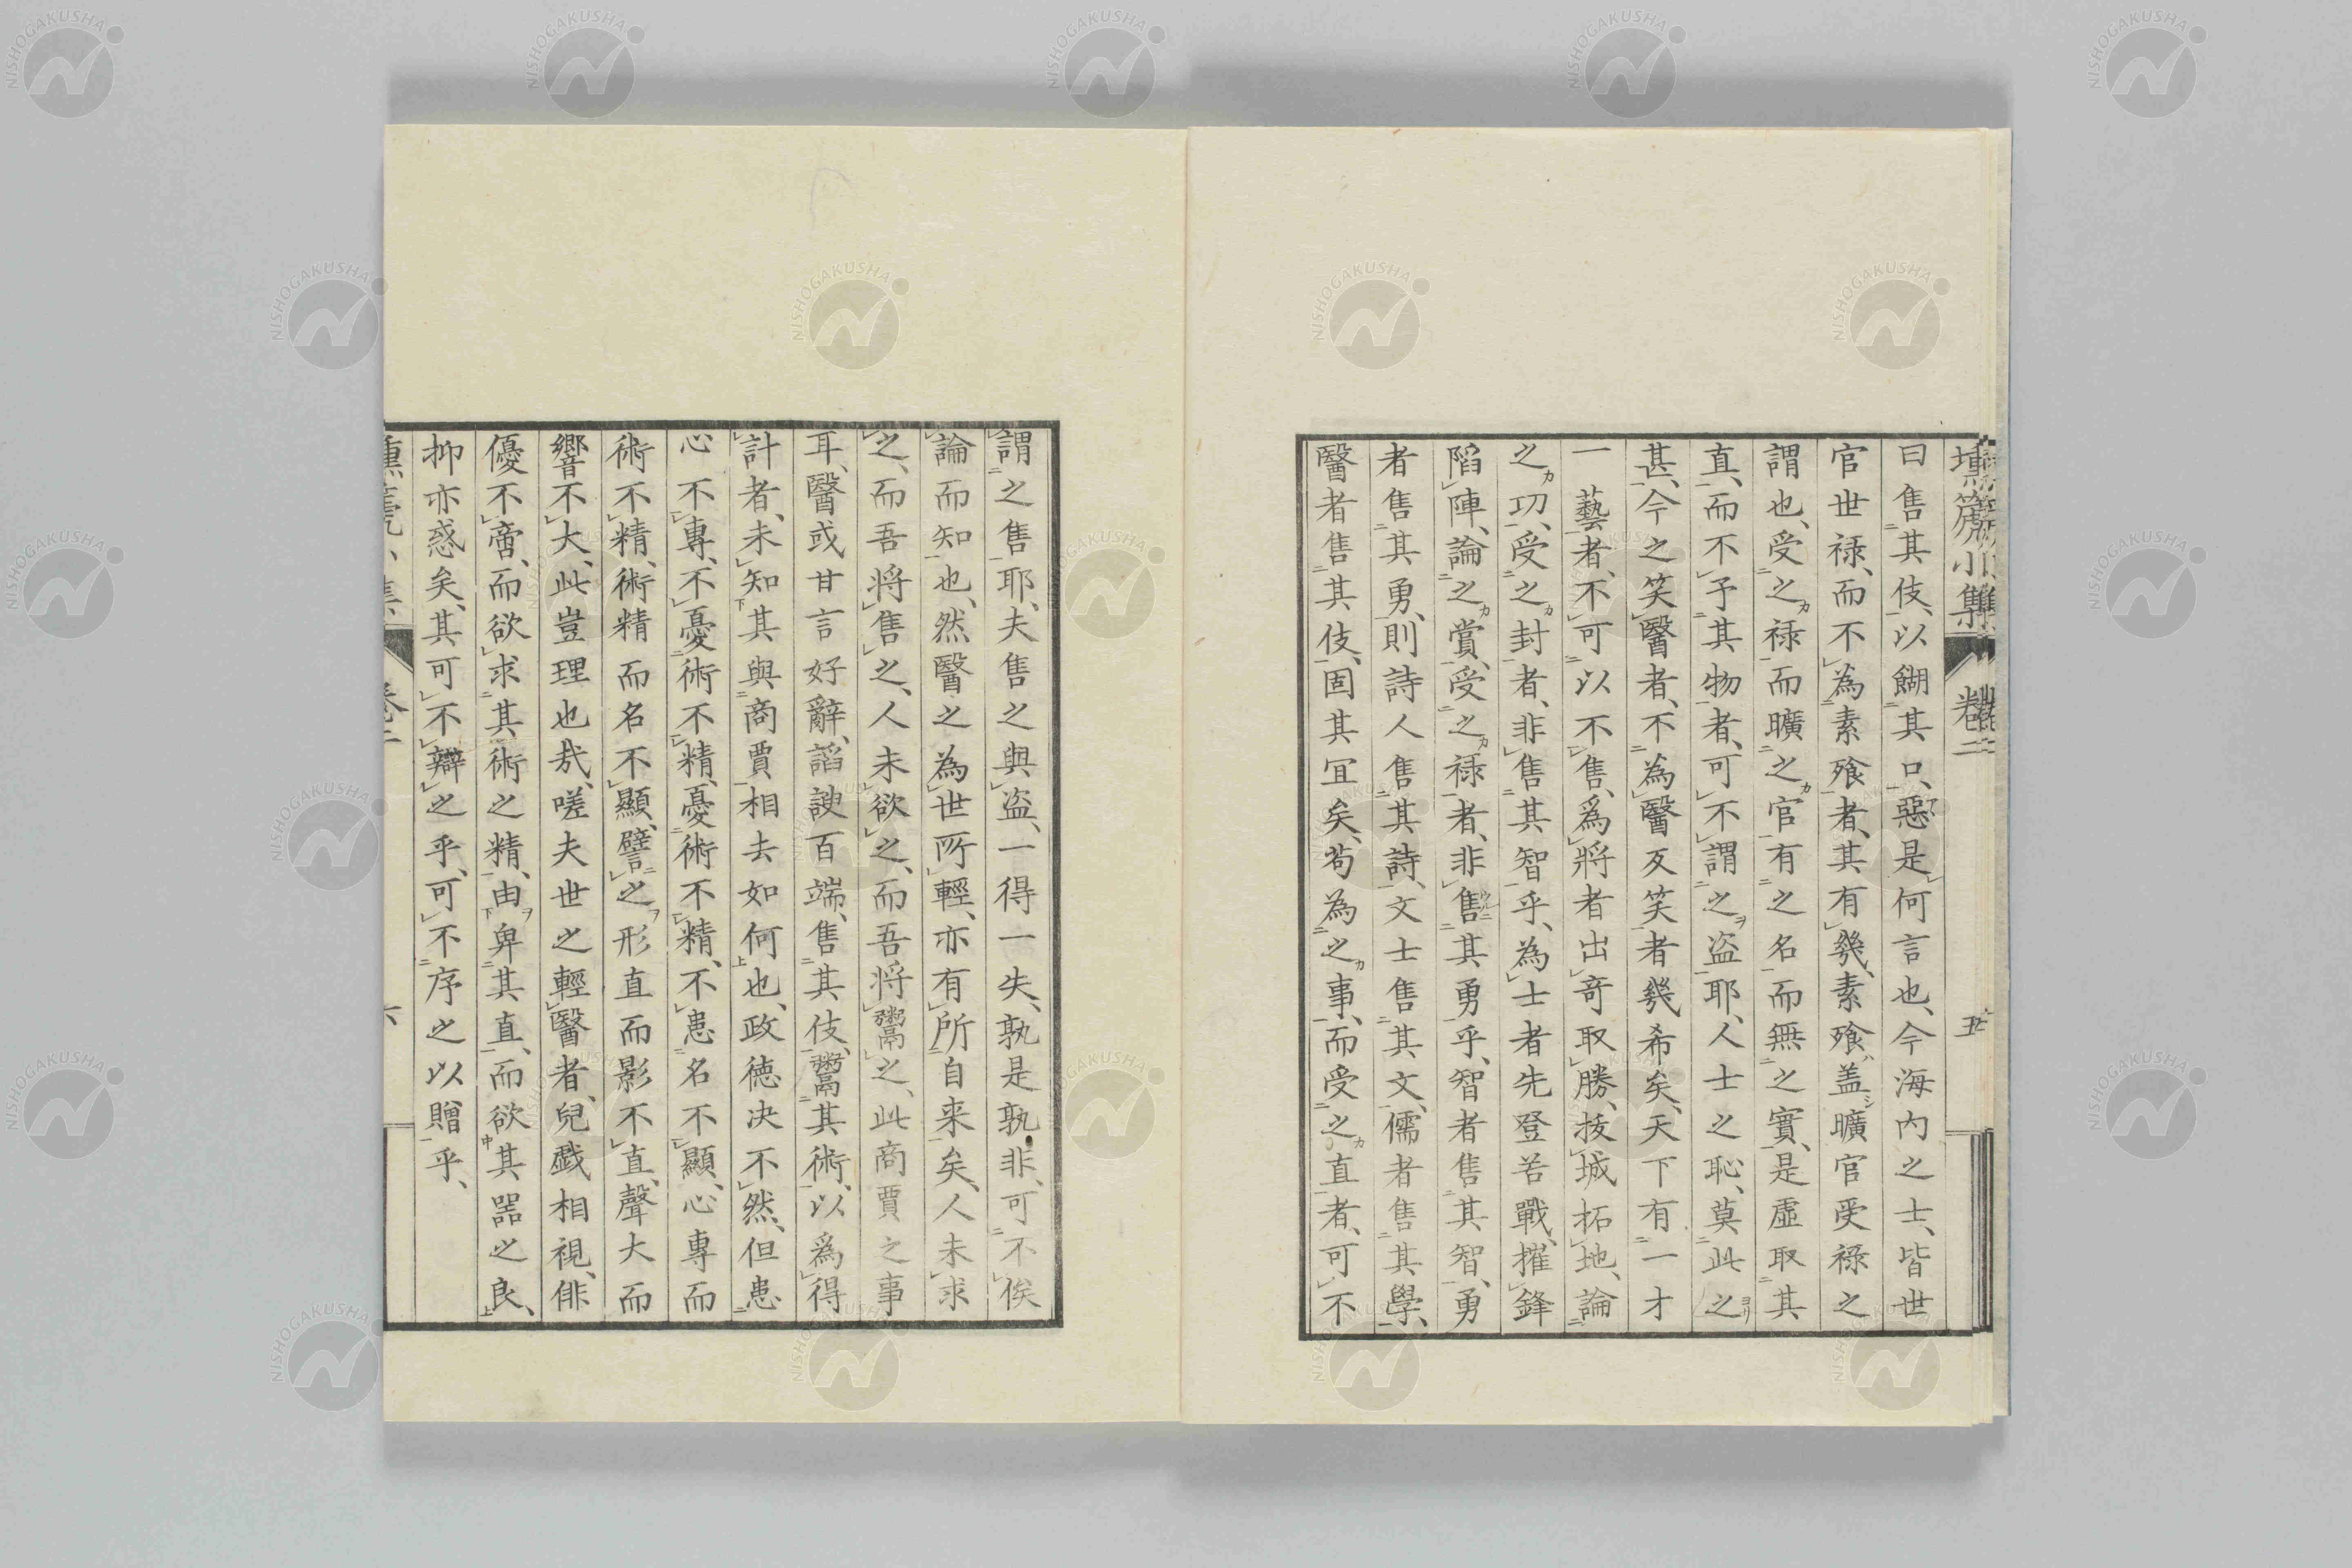 壎篪小集 卷二 五
曰售其伎、以餬其口、惡是何言也、今海内之士、皆世
官世禄、而不為素飱者、其有幾、素飱盖曠官受禄之
謂也、受之禄而曠之官有之名而無之實、是虛取其
直、而不予其物者、可不謂之盗耶、人士之恥、莫此之
甚、今之笑醫者、不為醫反笑者幾希矣、天下有一才
一藝者、不可以不售、爲將者出竒取勝、抜城拓地、論
之功、受之封者、非售其智乎、為士者先登苦戰、摧鋒
陷陣、論之賞、受之禄者、非售其勇乎、智者售其智、勇
者售其勇、則詩人售其詩、文士售其文、儒者售其學、
醫者售其伎、固其冝矣、茍為之事、而受之直者、可不
謂之售耶、夫售之與盗、一得一失、孰是孰非、可不俟
論而知也、然醫之為世所輕、亦有所自来矣、人未求
之、而吾将售之、人未欲之、而吾将鬻之、此商賈之事
耳、醫或甘言好辭、謟諛百端、售其伎、鬻其術、以爲得
計者、未知其與商賈相去如何也、政徳决不然、但患
心不專、不憂術不精、憂術不精、不患名不顯、心專而
術不精、術精而名不顯、譬之形直而影不直、聲大而
響不大、此豈理也㢤、嗟夫世之輕醫者、兒戯相視、俳
優不啻、而欲求其術之精、由卑其直、而欲其器之良、
抑亦惑矣、其可不辯之乎、可不序之以贈乎、
壎篪小集 卷二 六
NISHOGAKUSHA